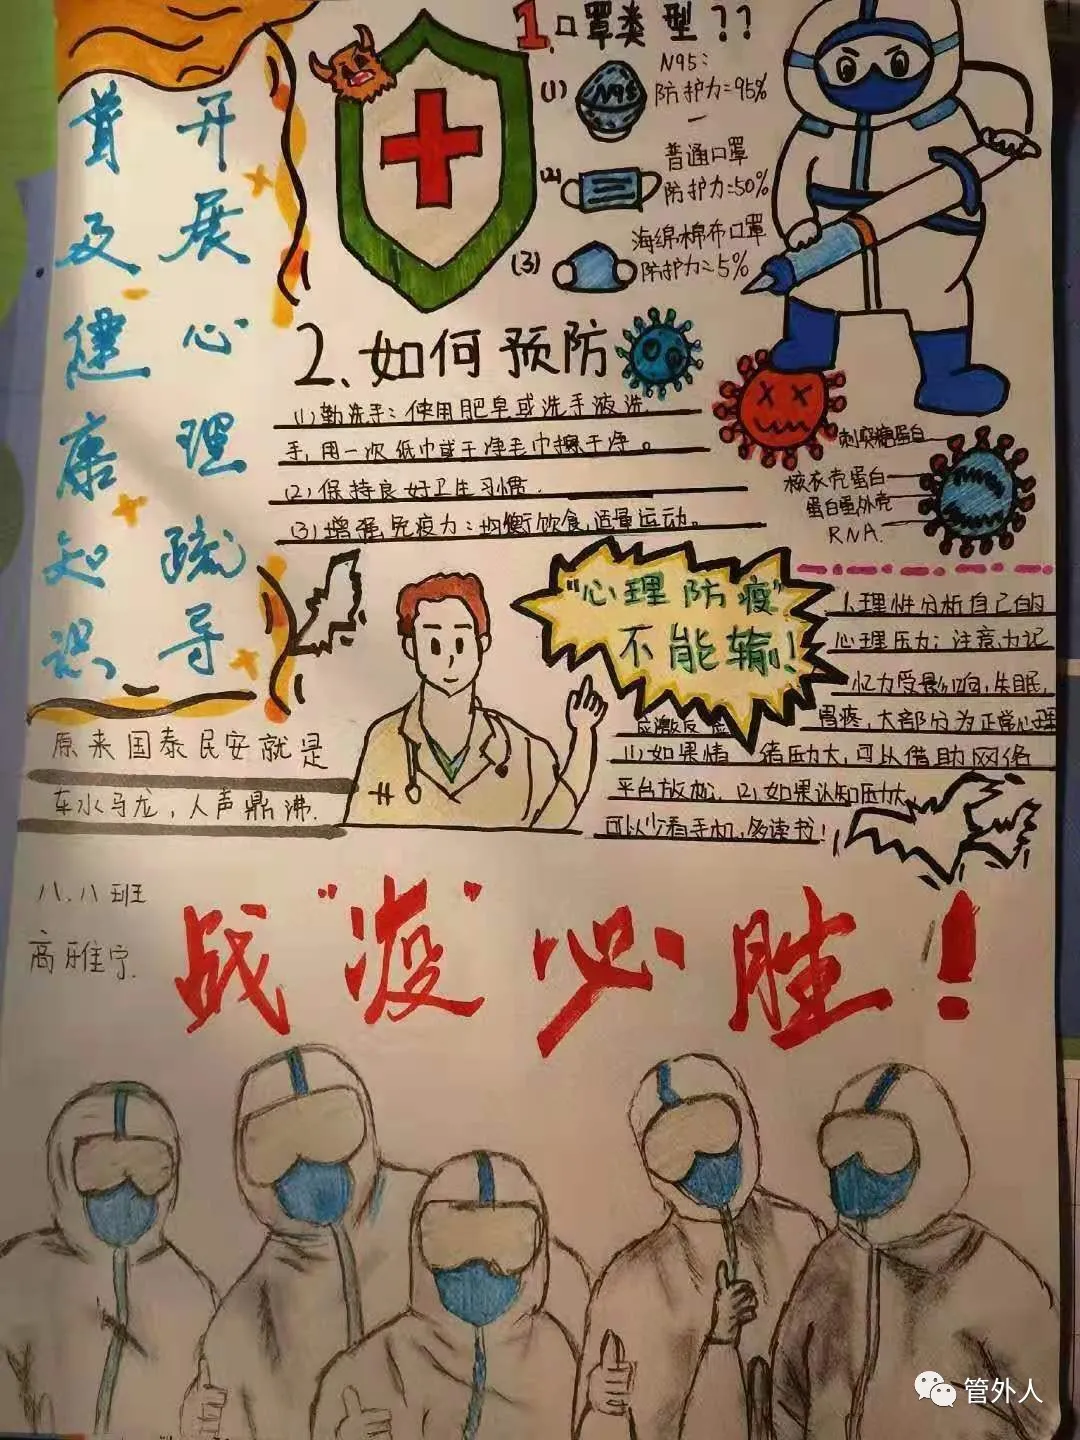 开展心理疏导
普及健康知识
1.口罩类型??
(1)
N95
N95:
防护力=95%
(2)
普通口罩
防护力=50%
(3)
海绵棉布口罩
防护力=5%
2、如何预防
(1)勤洗手:使用肥皂或洗手液洗
手,用一次纸巾或干净毛巾擦干净。
(2)保持良好卫生习惯.
(3)增强免疫力:均衡饮食,适量运动。
刺突糖蛋白
核衣壳蛋白
RNA.
"心理防疫"
不能输!
人理性分析自己的
心理压力:注意力记
忆力受影响,失眠,
胃疼,大部分为正常心理
应激反应
(1)如果情绪压力大,可以借助网络
平台放松.(2)如果认知压力大
可以少看手机,多读书!
原来国泰民安就是
车水马龙,人声鼎沸.
八.八班
高雅宁.
战"疫"必胜!
管外人